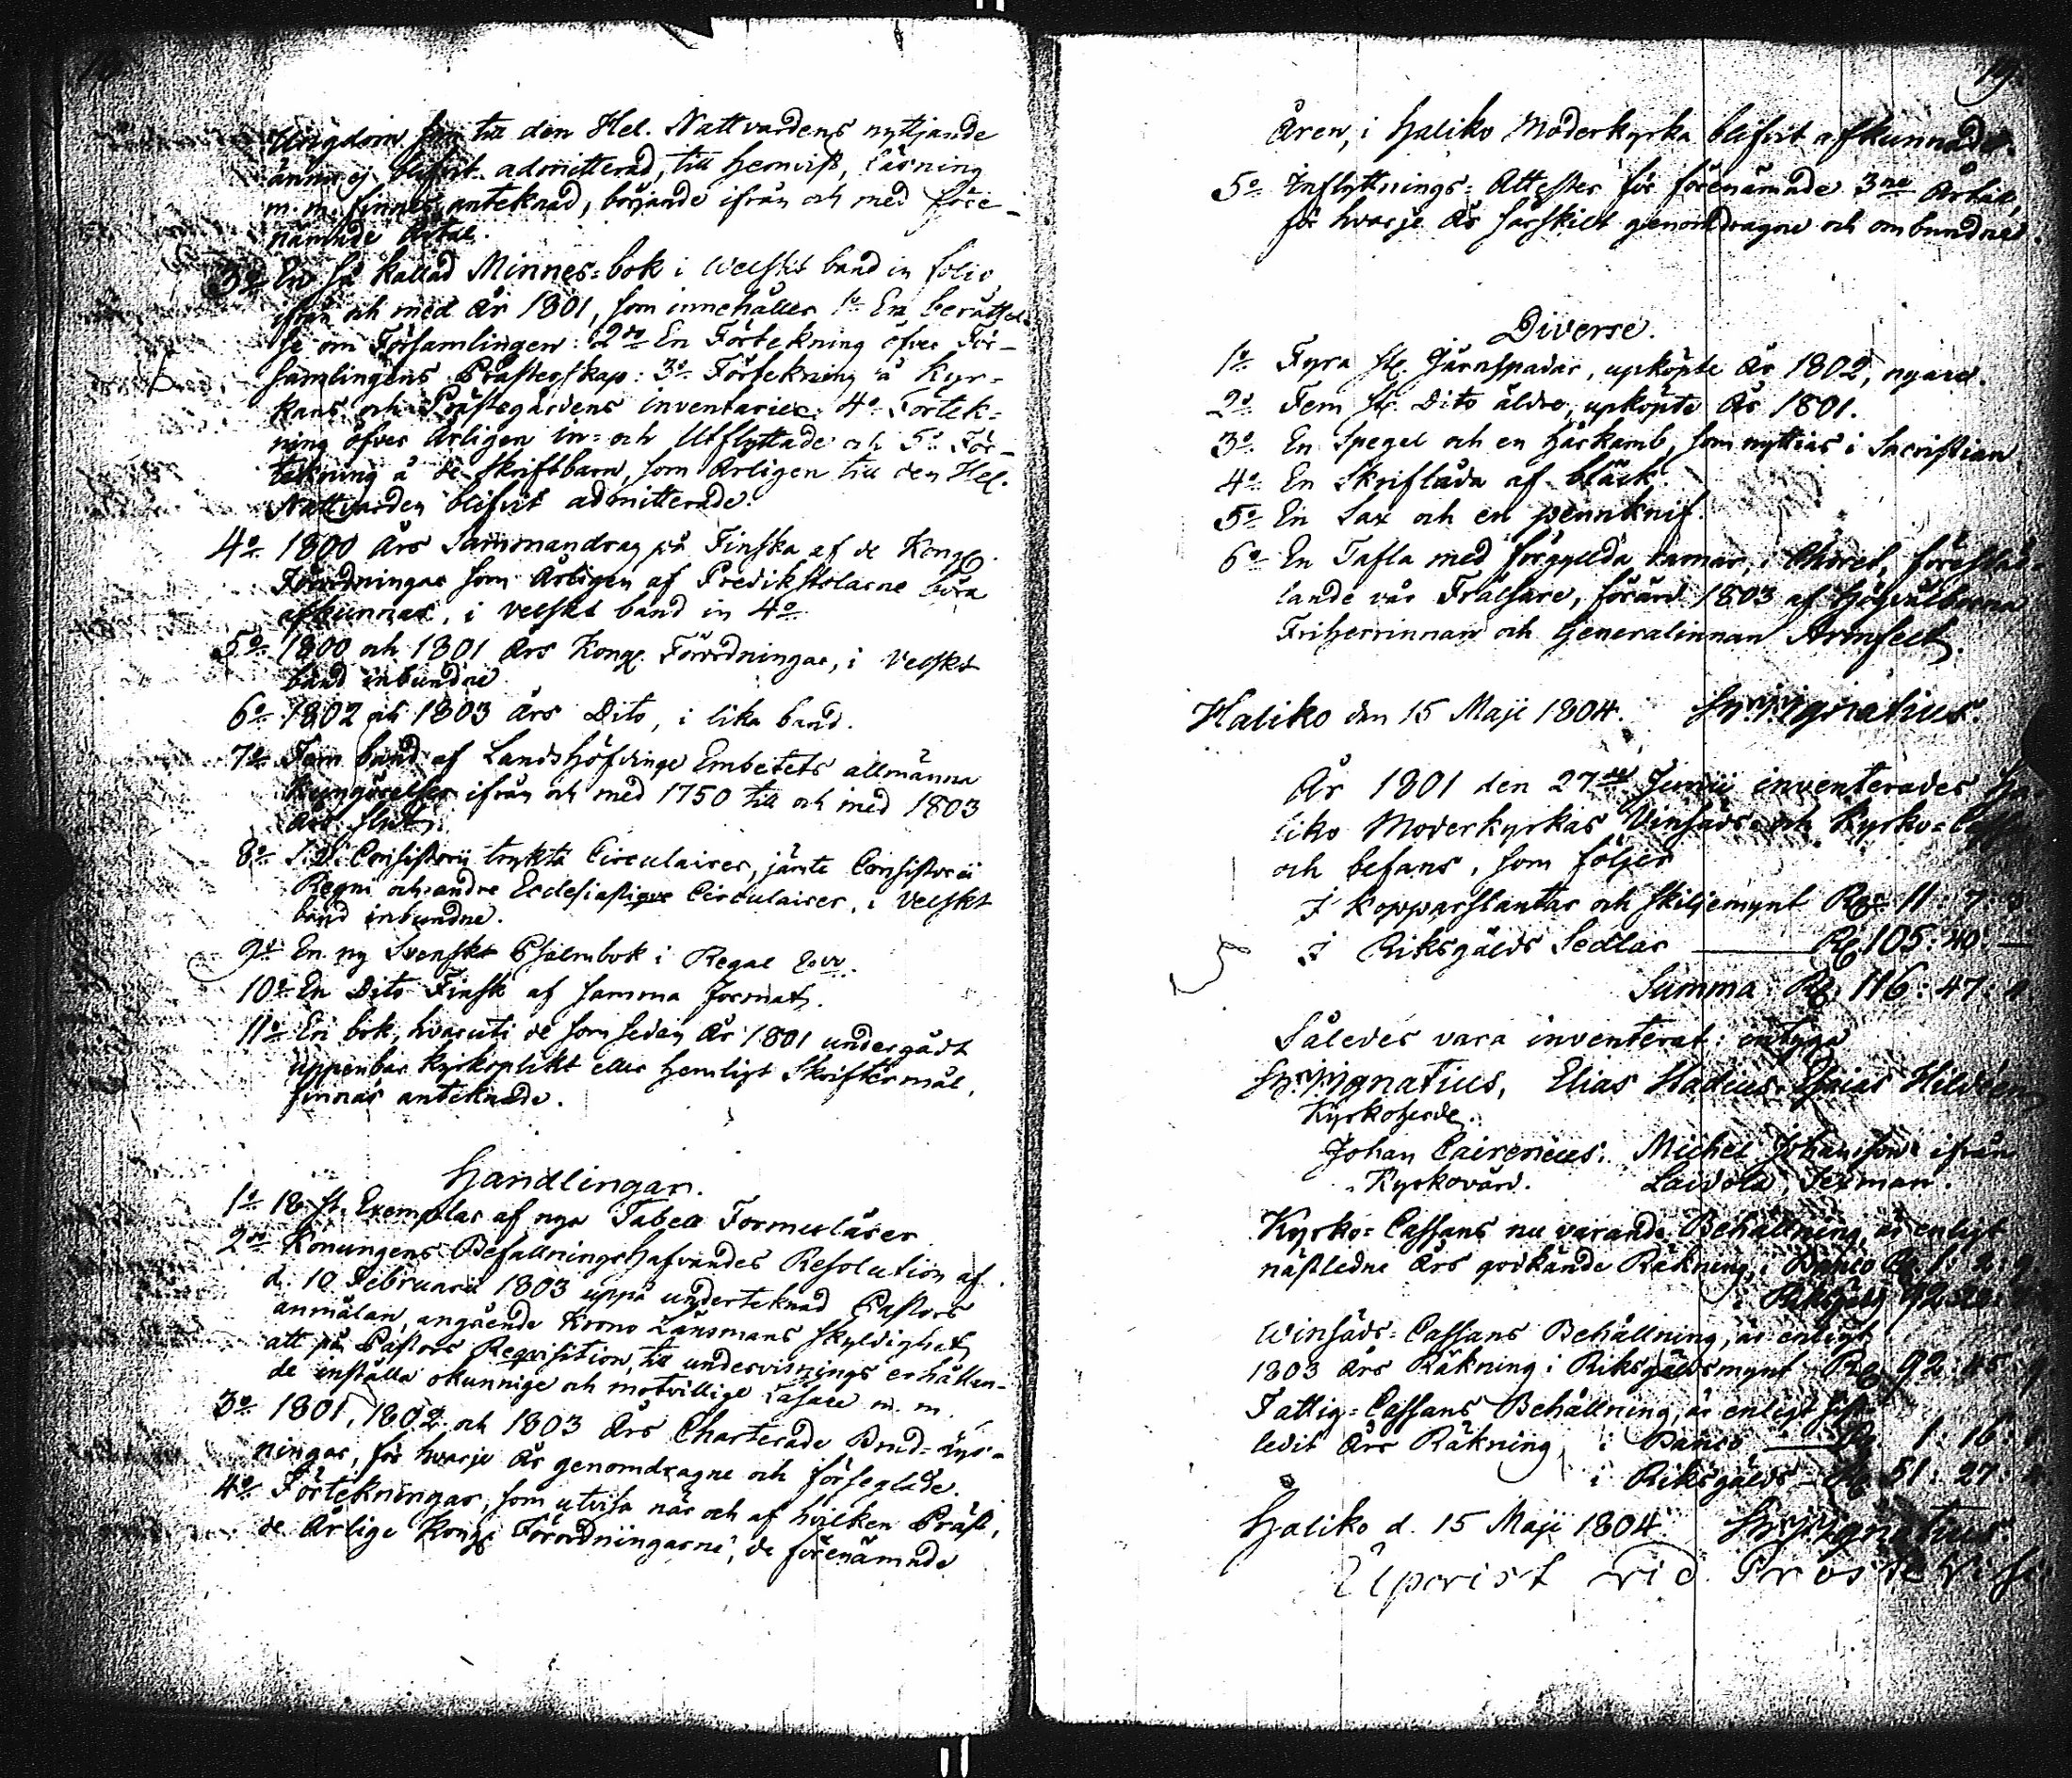 Ungdom som till den Hel. Nattvardens nyttjande
ännu ej blifvit admitterad, till hemvist, läsning
m. m. finnes anteknad, börjande ifrån och med före-
nämnde Årtal.
3o En så kallad Minnes=bok i Velskt band in folio
ifrån och med År 1801, som innehåller 1o En berättel-
se om Församlingen: 2do En Förtekning öfver För-
samlingens Prästerskap: 3o Förtekning å Kyr-
kans och Prästegårdens inventarier: 4o Förtek-
ning öfver Årligen in= och Utflyttade och 5o För-
tekning å de Skriftbarn, som Årligen till den Hel.
Nattvarden blifvit admitterade.
4o 1800 Års Sammandrag på Finska af de Kongl.
Förordningar som Årligen af Predikstolarne böra
afkunnas, i velskt band in 4o
5o 1800 och 1801 Års Kongl. Förordningar, i Velskt
band inbundne
6o 1802 och 1803 Års Dito, i lika band.
7o Fem band af Landshöfdinge Embetets allmänna
Kungörelser ifrån och med 1750 till och med 1803
Års slut.
8o Consistorii trykta Circulairer, jämte Consistorii
Regni och andre Ecclesiastique Circulairer, i Velskt
band inbundne.
9o En ny Svenskt Psalmbok i Regal 8vo
10o En Dito Finsk af samma format.
11o En bok, hvaruti de som sedan År 1801 undergådt
uppenbar Kyrkoplikt eller hemligt Skriftermål,
finnas anteknade.
Handlingar.
1o 18 st. Exemplar af nya Tabell Formulärer
2do Konungens Befallningshafvandes Resolution af
d. 10 Februarii 1803 uppå underteknad Pastors
anmälan, angående Krono Länsmans skyldighet
att på Pastors Requisition, till undervisnings erhållan-
de inställa okunnige och motvillige Läsare m. m.
3o 1801, 1802 och 1803 Års Charterade Brud=lys-
ningar, för hvarje År genomdragne och förseglade.
4o Förtekningar, som utvisa när och af hvilken Präst,
de Årlige Kongl. Förordningarne, de förenämnde
19
Åren, i Haliko Moderkyrka blifvit afkunnade.
5o Inflyttnings=Attester för förenämnde 3ne Årtal,
för hvarje År särskilt genomdragne och ombundne.
Diverse.
1o Fyra st. Järnspadar, upköpte År 1802, nyare.
2o Fem st. Dito äldre, upköpte År 1801.
3o En Spegel och en hårkamb, som nyttias i Sacristian
4o En Skriflåda af bläck.
5o En Sax och en pennknif.
6o En Tafla med förgyllda ramar, i Choret, föreställ-
lande vår Frälsare, förärd 1803 af Högvälborna
Friherrinnan och Generalinnan Armfelt.
Haliko den 15 Maji 1804. Ignatius.
År 1801 den 27de Junii inventerades Ha-
liko Moderkyrkas Vinsäds= och Kyrko=Cassa
och befans, som följer
I Kopparslantar och Skiljemynt Rd 11: 7:
I Riksgälds Sedlar Rd 105: 40 —
Summa Rd 116: 47:
Således vara inventerat: intyga
Ignatius, Elias Esaias Hildén
Kyrkoherde.
Johan Cairenius. Michel Johansson ifrån
Kyrkovärd. Laidola Sexman.
Kyrko=Cassans nu varande Behållning, är enligt
nästledne Års godkände Räkning, i Banco Rd 1: 2:
i Riksgäld 92:
Winsäds=Cassans Behållning, är enligt
1803 Års Räkning i Riksgäldsmynt Rd 92: 45
Fattig=Cassans Behållning, är enligt
ledit Års Räkning i Banco Rd 1: 16:
i Riksgälds Rd 51: 27:
Haliko d. 15 Maji 1804. Ignatius
vid